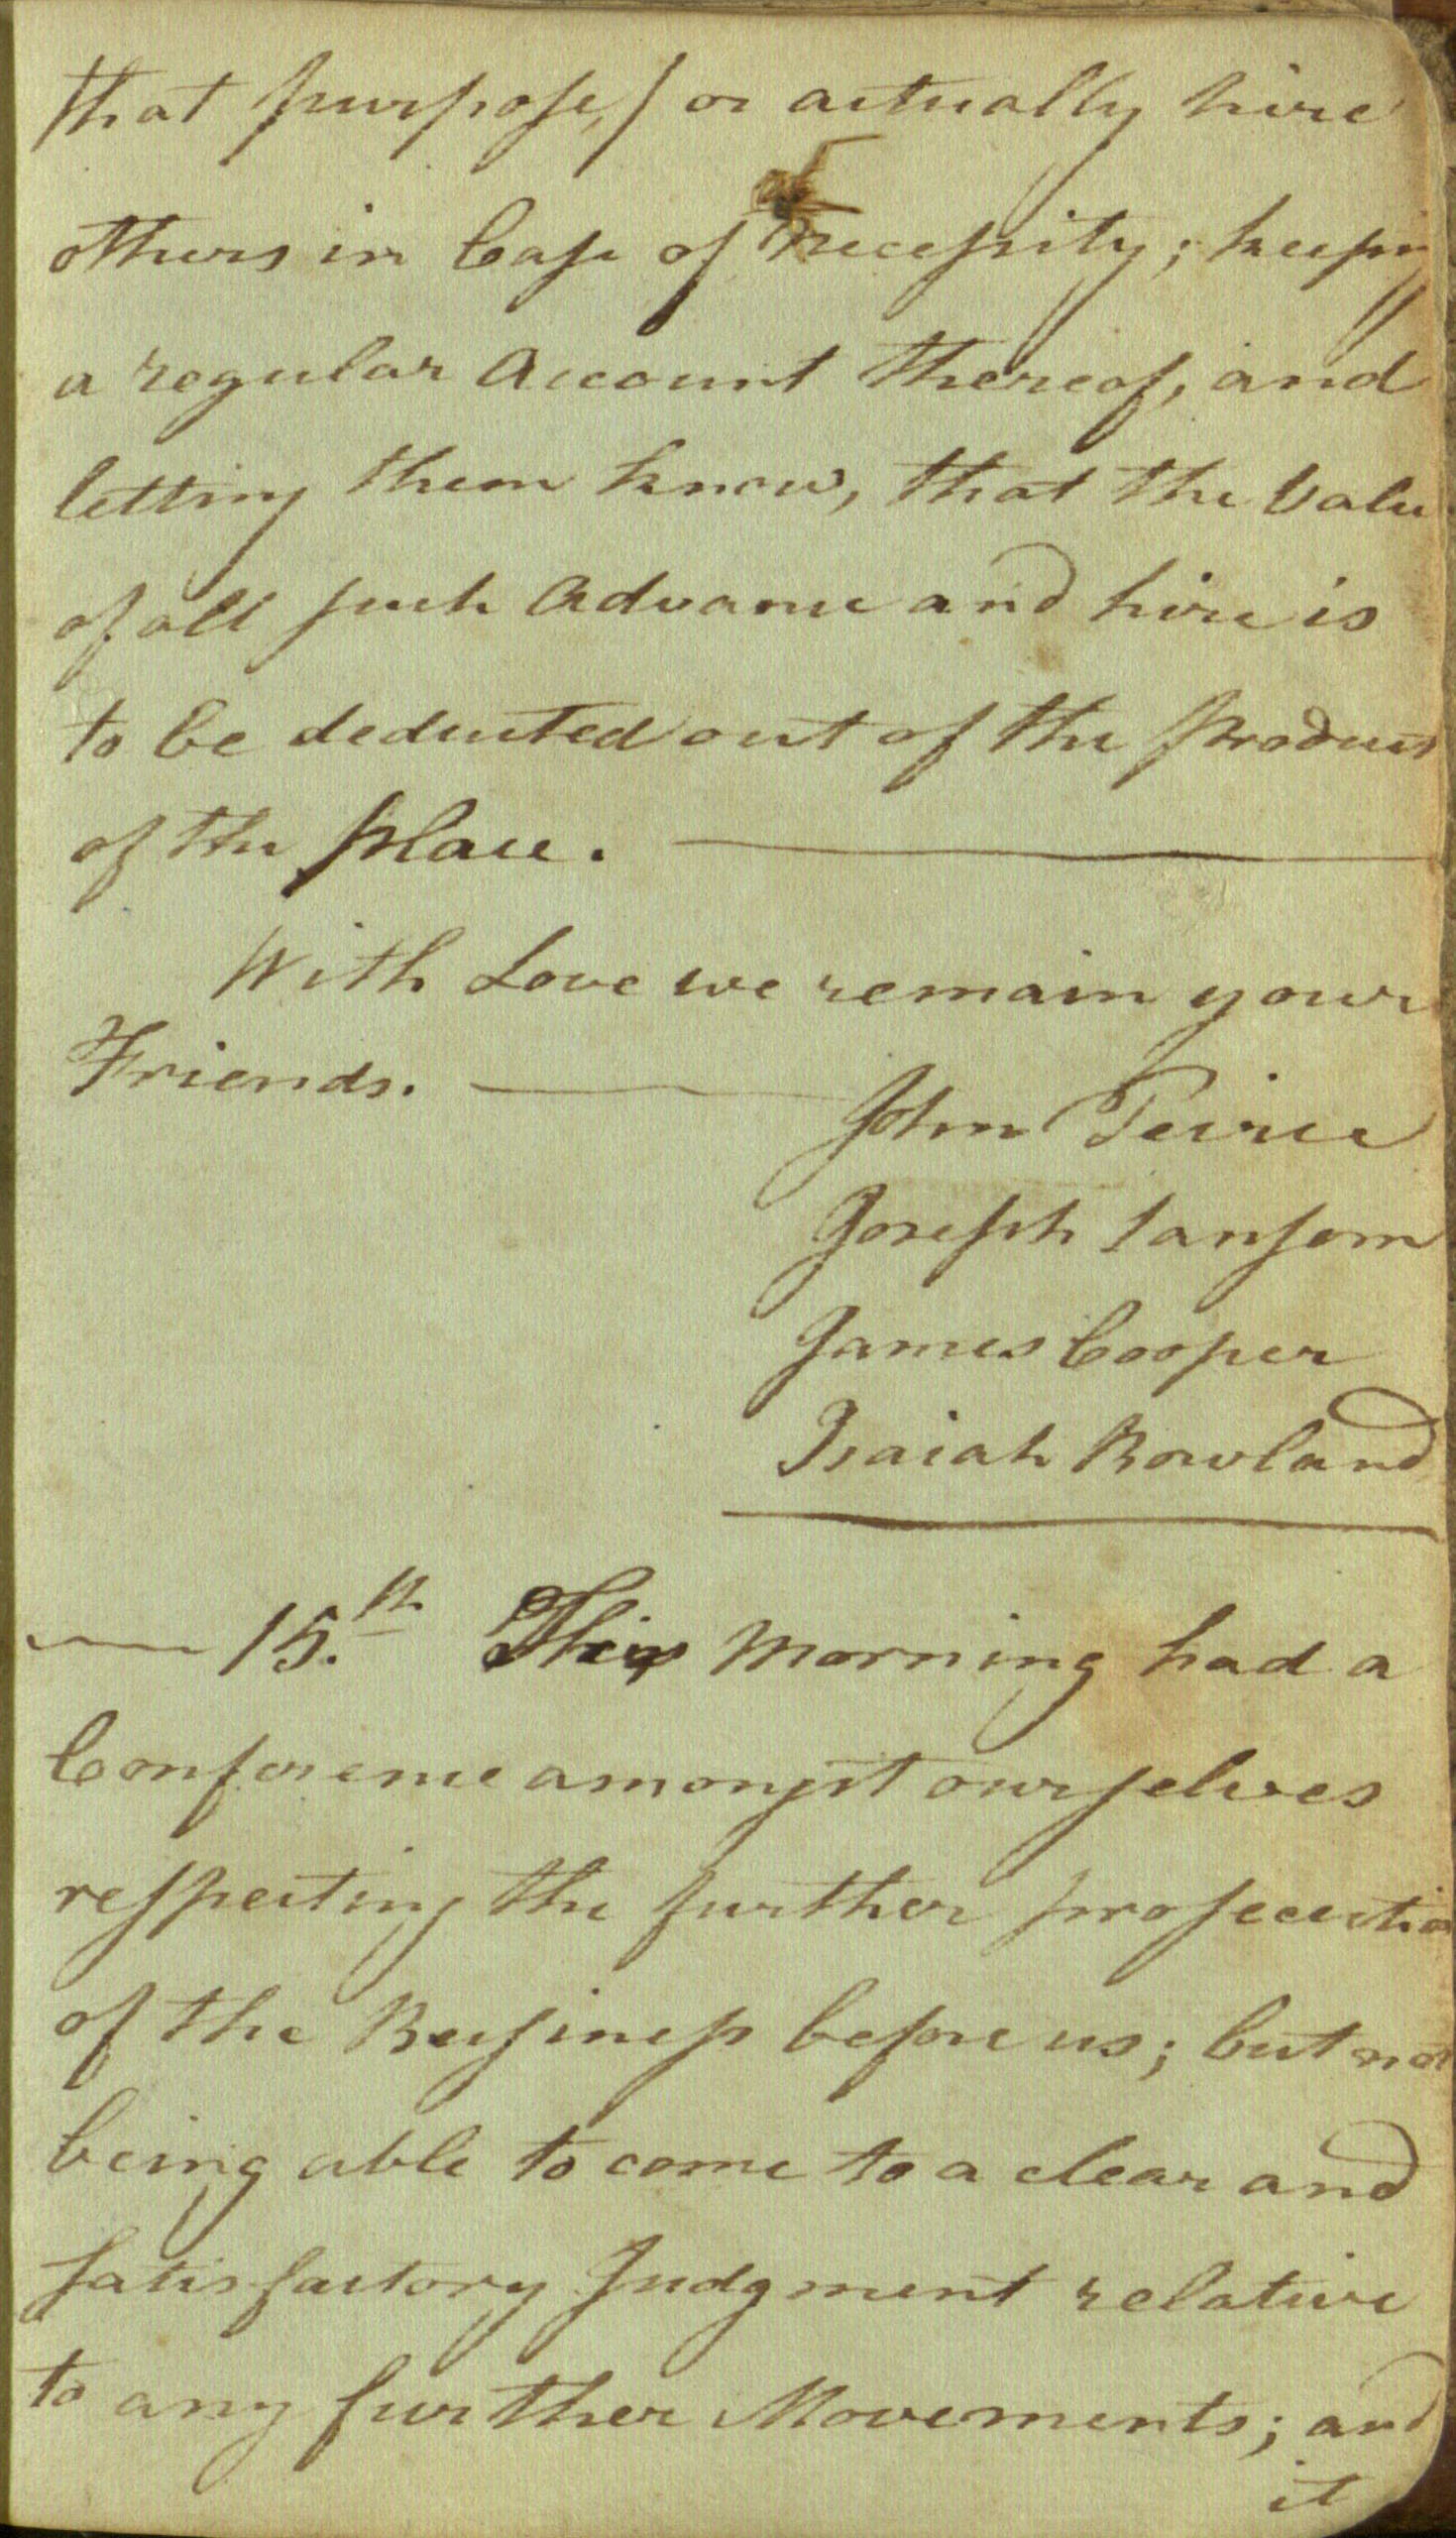 that purpose,) or actually hire
others in Case of necessity; keeping
a regular Account thereof, and
letting them know, that the Value
of all such Advance and hire is
to be deducted out of the produce
of the place.
With Love we remain your
Friends.
John Peirce
Joseph Sansom
James Cooper
Isaiah Rowland
15.th This Morning had a
Conference amongst ourselves
respecting the further prosecution
of the Business before us; but not
being able to come to a clear and
satisfactory Judgment relative
to any further Movements; and
it